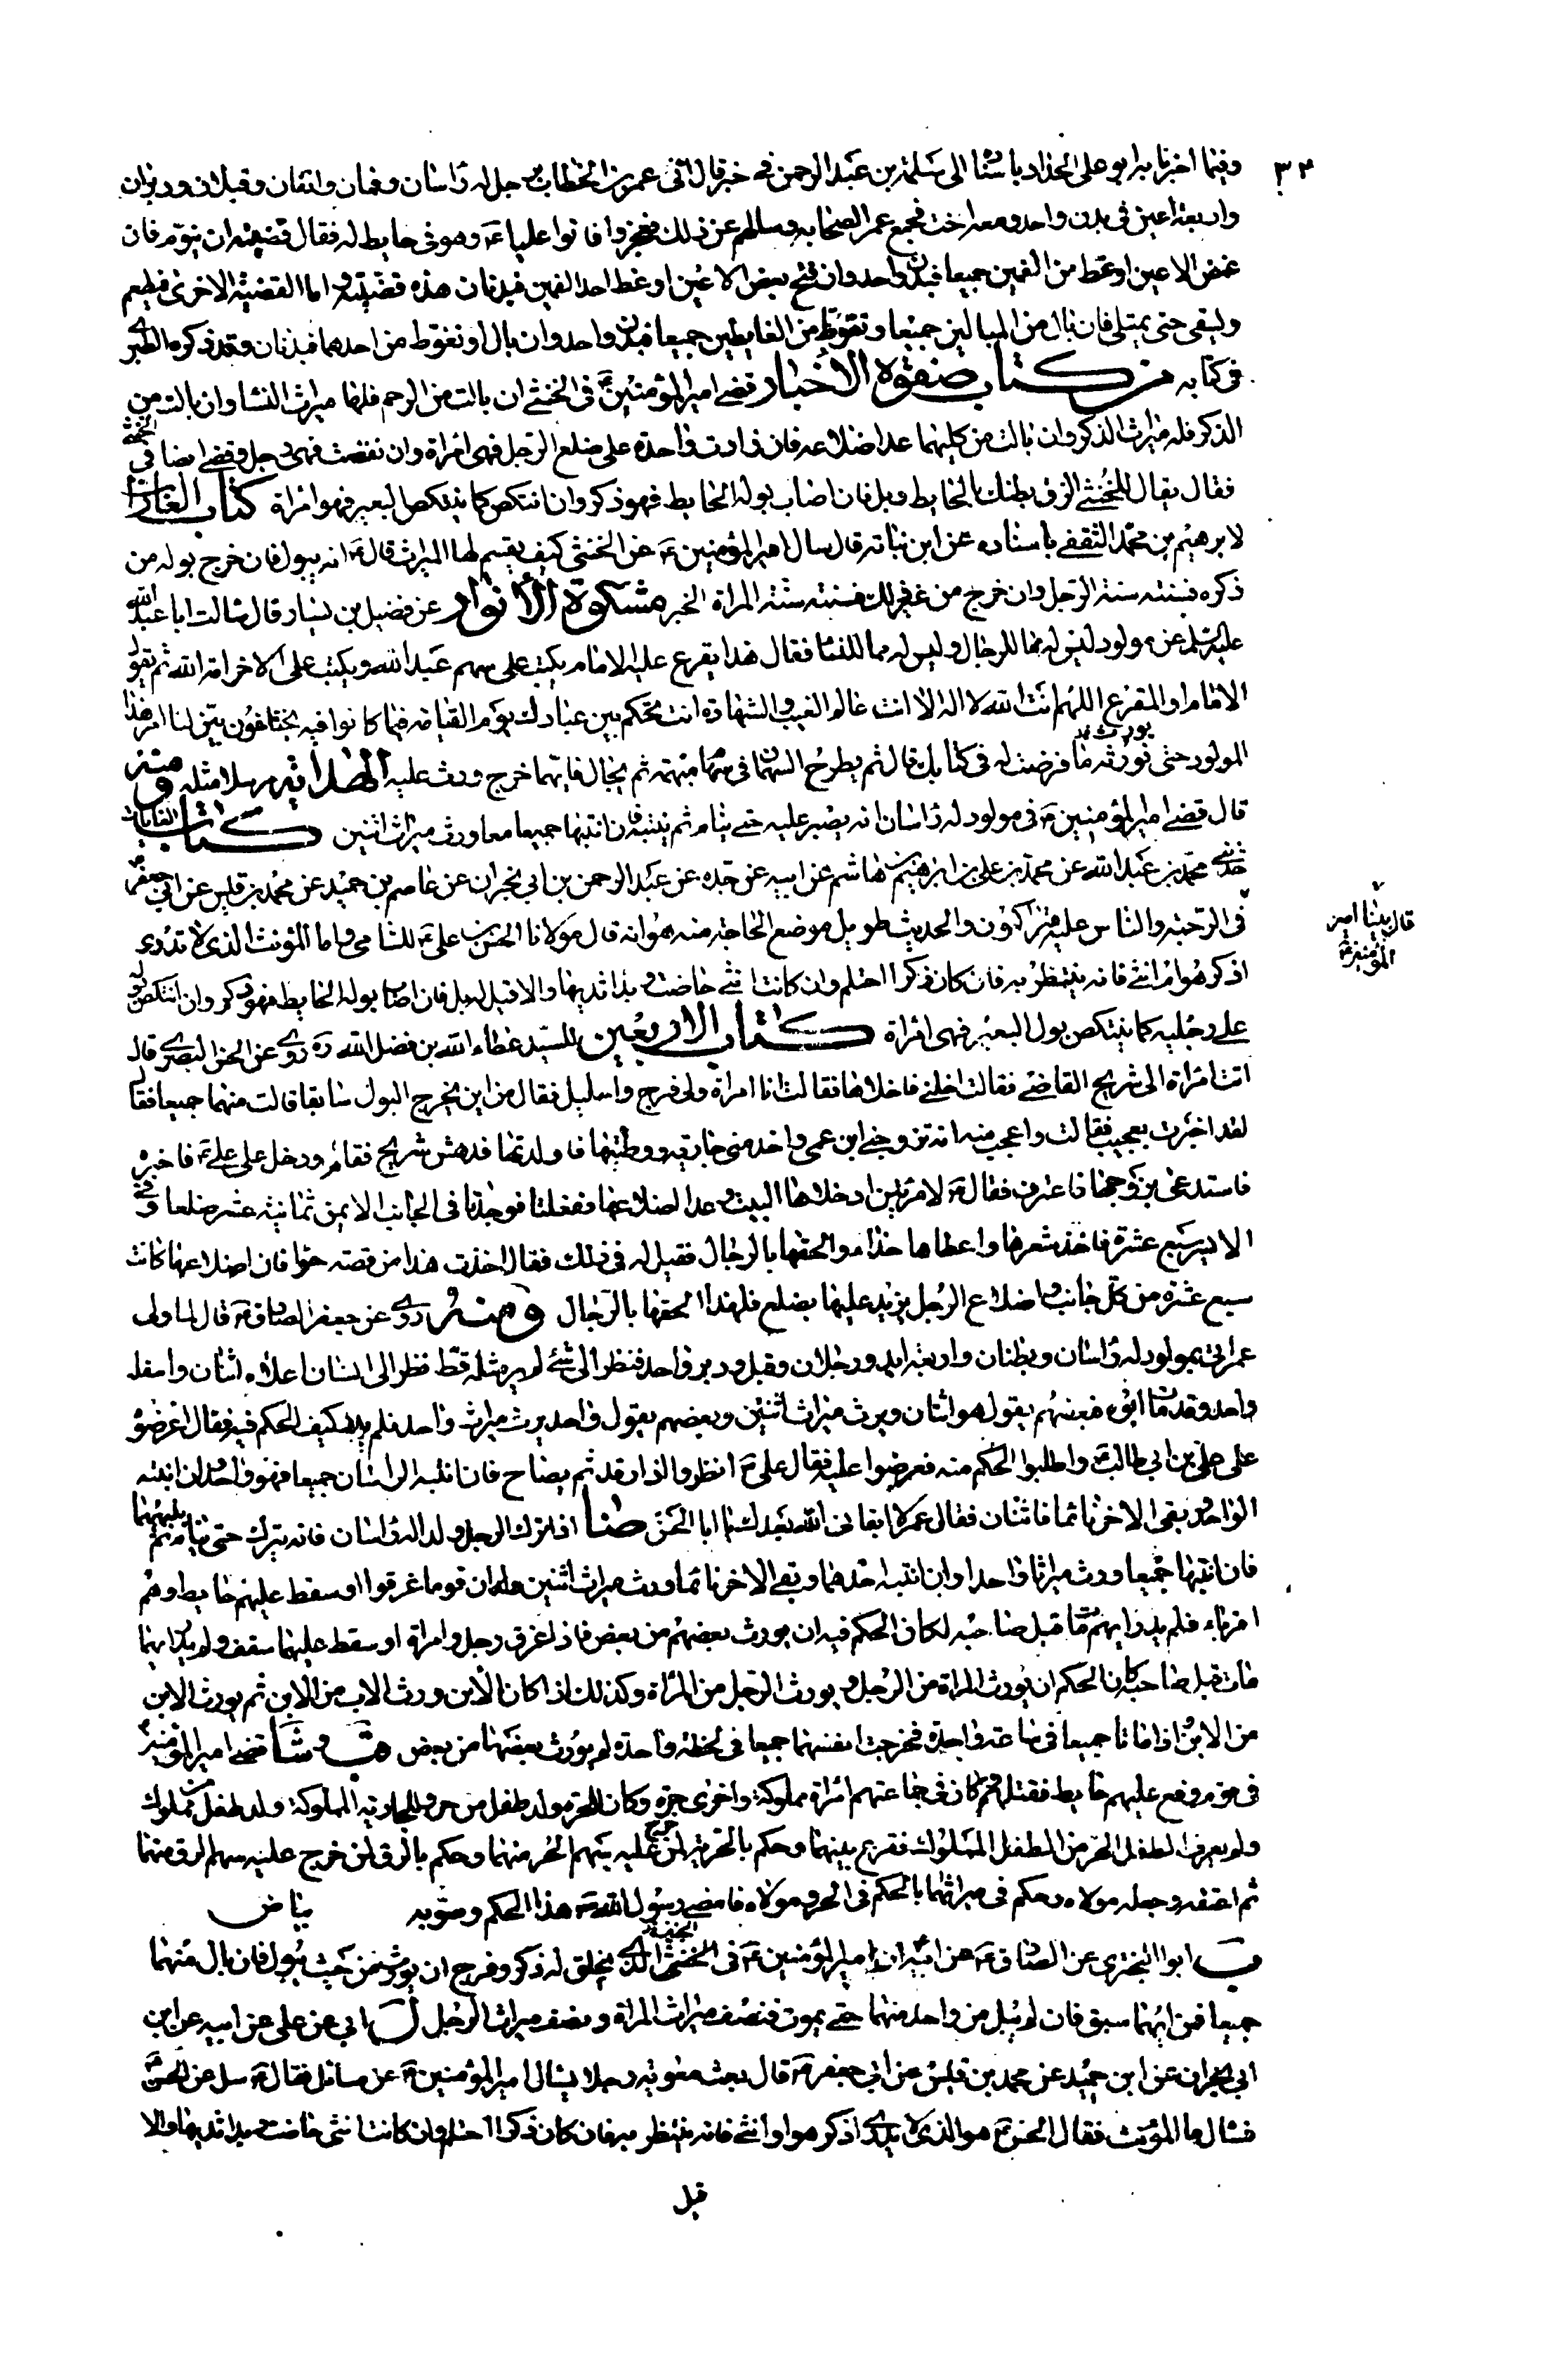 ٣٣
وفيما اخبرنا به ابو على الحداد باسناده الى سلمة بن عبد الرحمن فى خبر قال اتى عمر بن الخطاب برجل له راسان وفمان وانفان وقبلان ودبران
واربعة اعين فى بدن واحد ومعه اخت فجمع عمر الصحابة وسالهم عن ذلك فعجزوا فاتوا عليا ع وهو فى حايط له فقال قضيته ان ينوم فان
غمض الاعين او غط من الفمين جميعا فبدن واحد وان فتح بعض الاعين او غط احد الفمين فبدنان هذه قضيته واما القضية الاخرى فيطعم
ويسقى حتى يمتلى فان بال من المبالين جميعا وتغوط من الغايطين جميعا فبدن واحد وان بال او تغوط من احدهما فبدنان وقد ذكره الطبرى
فى كتابه من كتاب صفوة الاخبار قضى امير المؤمنين ع فى الخنثى ان بالت من الرحم فلها ميراث النسا وان بالت من
الذكر فله ميراث الذكر وان بالت من كليهما عد اضلاعه فان زادت واحدة على ضلع الرجل فهى امراة وان نقصت فهى رجل وقضى ايضا فى الخنثى
فقال يقال للخنثى الزق بطنك بالحايط وبل فان اصاب بوله الحايط فهو ذكر وان انتكص كما ينتكص البعير فهو امراة كتاب الغارات
لابرهيم بن محمد الثقفى باسناده عن ابن نباته قال سال امير المؤمنين ع عن الخنثى كيف يقسم لها الميراث قال ع انه يبول فان خرج بوله من
ذكره فسنته سنة الرجل وان خرج من غير ذلك فسنته سنة المراة الخبر مشكوة الانوار عن فضيل بن يسار قال سالت ابا عبد الله
عليه السلم عن مولود ليس له ما للرجال وليس له ما للنسا فقال هذا يقرع عليه الامام يكتب على سهم عبد الله ويكتب على الاخر امة الله ثم يقول
الامام او المقرع اللهم انت الله لا اله الا انت عالم الغيب والشهادة انت تحكم بين عبادك يوم القيامة فيما كانوا فيه يختلفون بين لنا امر هذا
المولود حتى نورثه ما فرضت له فى كتابك قال ثم يطرح السهمان فى سهام مبهمة ثم يجال فايهما خرج ورث عليه الهداية مرسلا مثله ومنه
قال قضى امير المؤمنين ع فى مولود له راسان انه يصبر عليه حتى ينام ثم ينبه فان انتبها جميعا معا ورث ميراث اثنين كتاب الغايات
حدثنى محمد بن عبد الله عن محمد بن على بن ابرهيم بن هاشم عن ابيه عن جده عن عبد الرحمن بن ابى نجران عن عاصم بن حميد عن محمد بن قيس عن ابى جعفر ع
قال بينا امير المؤمنين ع
فى الرحبة والناس عليه متراكمون والحديث طويل موضع الحاجة منه هو انه قال مولانا الحسن بن على ع للشامى واما المؤنث الذى لا تدرى
اذكر هو ام انثى فانه ينتظر به فان كان ذكرا احتلم وان كانت انثى حاضت وبدا ثديها والا قيل له بل فان اصاب بوله الحايط فهو ذكر وان انتكص بوله
على رجليه كما ينتكص بول البعير فهى امراة كتاب الاربعين للسيد عطاء الله بن فضل الله ره روى عن الحسن البصرى قال
اتت امراة الى شريح القاضى فقالت اخلنى فاخلاها فقالت انا امراة ولى فرج واحليل فقال من اين يخرج البول سابقا قالت منهما جميعا فقال
لقد اخبرت بعجيب فقالت واعجب منه انه تزوجنى ابن عمى واخدمنى جارية ووطئتها فاولدتها فدهش شريح فقام ودخل على على ع فاخبره
فاستدعى بزوجها فاعترف فقال ع لامراتين ادخلاها البيت وعدا اضلاعها ففعلتا فوجدتا فى الجانب الايمن ثمانية عشر ضلعا وفى
الايسر سبع عشرة فاخذ شعرها واعطاها حذاء والحقها بالرجال فقيل له فى ذلك فقال اخذت هذا من قصة حوا فان اضلاعها كانت
سبع عشرة من كل جانب واضلاع الرجل يزيد عليها بضلع فلهذا الحقها بالرجال ومنه روى عن جعفر الصادق ع قال لما ولى
عمر اتى بمولود له راسان وبطنان واربعة ايد ورجلان وقبل ودبر واحد فنظر الى شئ لم ير مثله قط نظر الى انسان اعلاه اثنان واسفله
واحد وقد مات ابوه فبعضهم يقول هو اثنان ويرث ميراث اثنين وبعضهم يقول واحد يرث ميراث واحد فلم يدر كيف الحكم فيه فقال اعرضوه
على على بن ابى طالب ع واطلبوا الحكم منه فعرضوا عليه فقال على ع انظروا اذا رقد ثم يصاح فان انتبه الراسان جميعا فهو واحد وان انتبه
الواحد وبقى الاخر نائما فاثنان فقال عمر لا ابقانى الله بعدك يا ابا الحسن ضا اذا ترك الرجل ولدا له راسان فانه يترك حتى ينام ثم ينبههما
فان انتبها جميعا ورث ميراثا واحدا وان انتبه احدهما وبقى الاخر نائما ورث ميراث اثنين ولو ان قوما غرقوا او سقط عليهم حايط وهم
اقرباء فلم يدر ايهم مات قبل صاحبه لكان الحكم فيه ان يورث بعضهم من بعض فاذا غرق رجل وامراة او سقط عليهما سقف ولم يدر ايهما
مات قبل صاحبه كان الحكم ان يورث المراة من الرجل ويورث الرجل من المراة وكذلك اذا كان الابن ورث الاب من الابن ثم يورث الابن
من الاب اذا ماتا جميعا فى ساعة واحدة فخرجت انفسهما جميعا فى لحظة واحدة لم يورث بعضهما من بعض قب وشا قضى امير المؤمنين ع
فى قوم وقع عليهم حايط فقتلهم وكان فى جماعتهم امراة مملوكة واخرى حرة وكان للحرة ولد طفل من حر وللجارية المملوكة ولد طفل من مملوك
ولم يعرف الطفل الحر من الطفل المملوك فقرع بينهما وحكم بالحرية لمن خرج عليه سهم الحر منهما وحكم بالرق لمن خرج عليه سهم الرق منهما
ثم اعتقه وجعله مولاه وحكم فى ميراثهما بالحكم فى الحر ومولاه فامضى رسول الله ص هذا الحكم وصوبه بياض
ب ابو البخترى عن الصادق ع عن ابيه ان امير المؤمنين ع فى الخنثى الذى يخلق له ذكر وفرج ان يورث من حيث يبول فان بال منهما
جميعا فمن ايهما سبق فان لم يبل من واحد منهما حتى يموت فنصف ميراث المراة ونصف ميراث الرجل ل ابى عن على عن ابيه عن ابن
ابى نجران عن ابن حميد عن محمد بن قيس عن ابى جعفر ع قال بعث معوية رجلا يسال امير المؤمنين ع عن مسائل فقال ع سل عن الحسن ع
فسال ما المؤنث فقال الحسن ع هو الذى لا يدرى اذكر هو او انثى فانه ينتظر به فان كان ذكرا احتلم وان كانت انثى حاضت وبدا ثديها والا
قيل